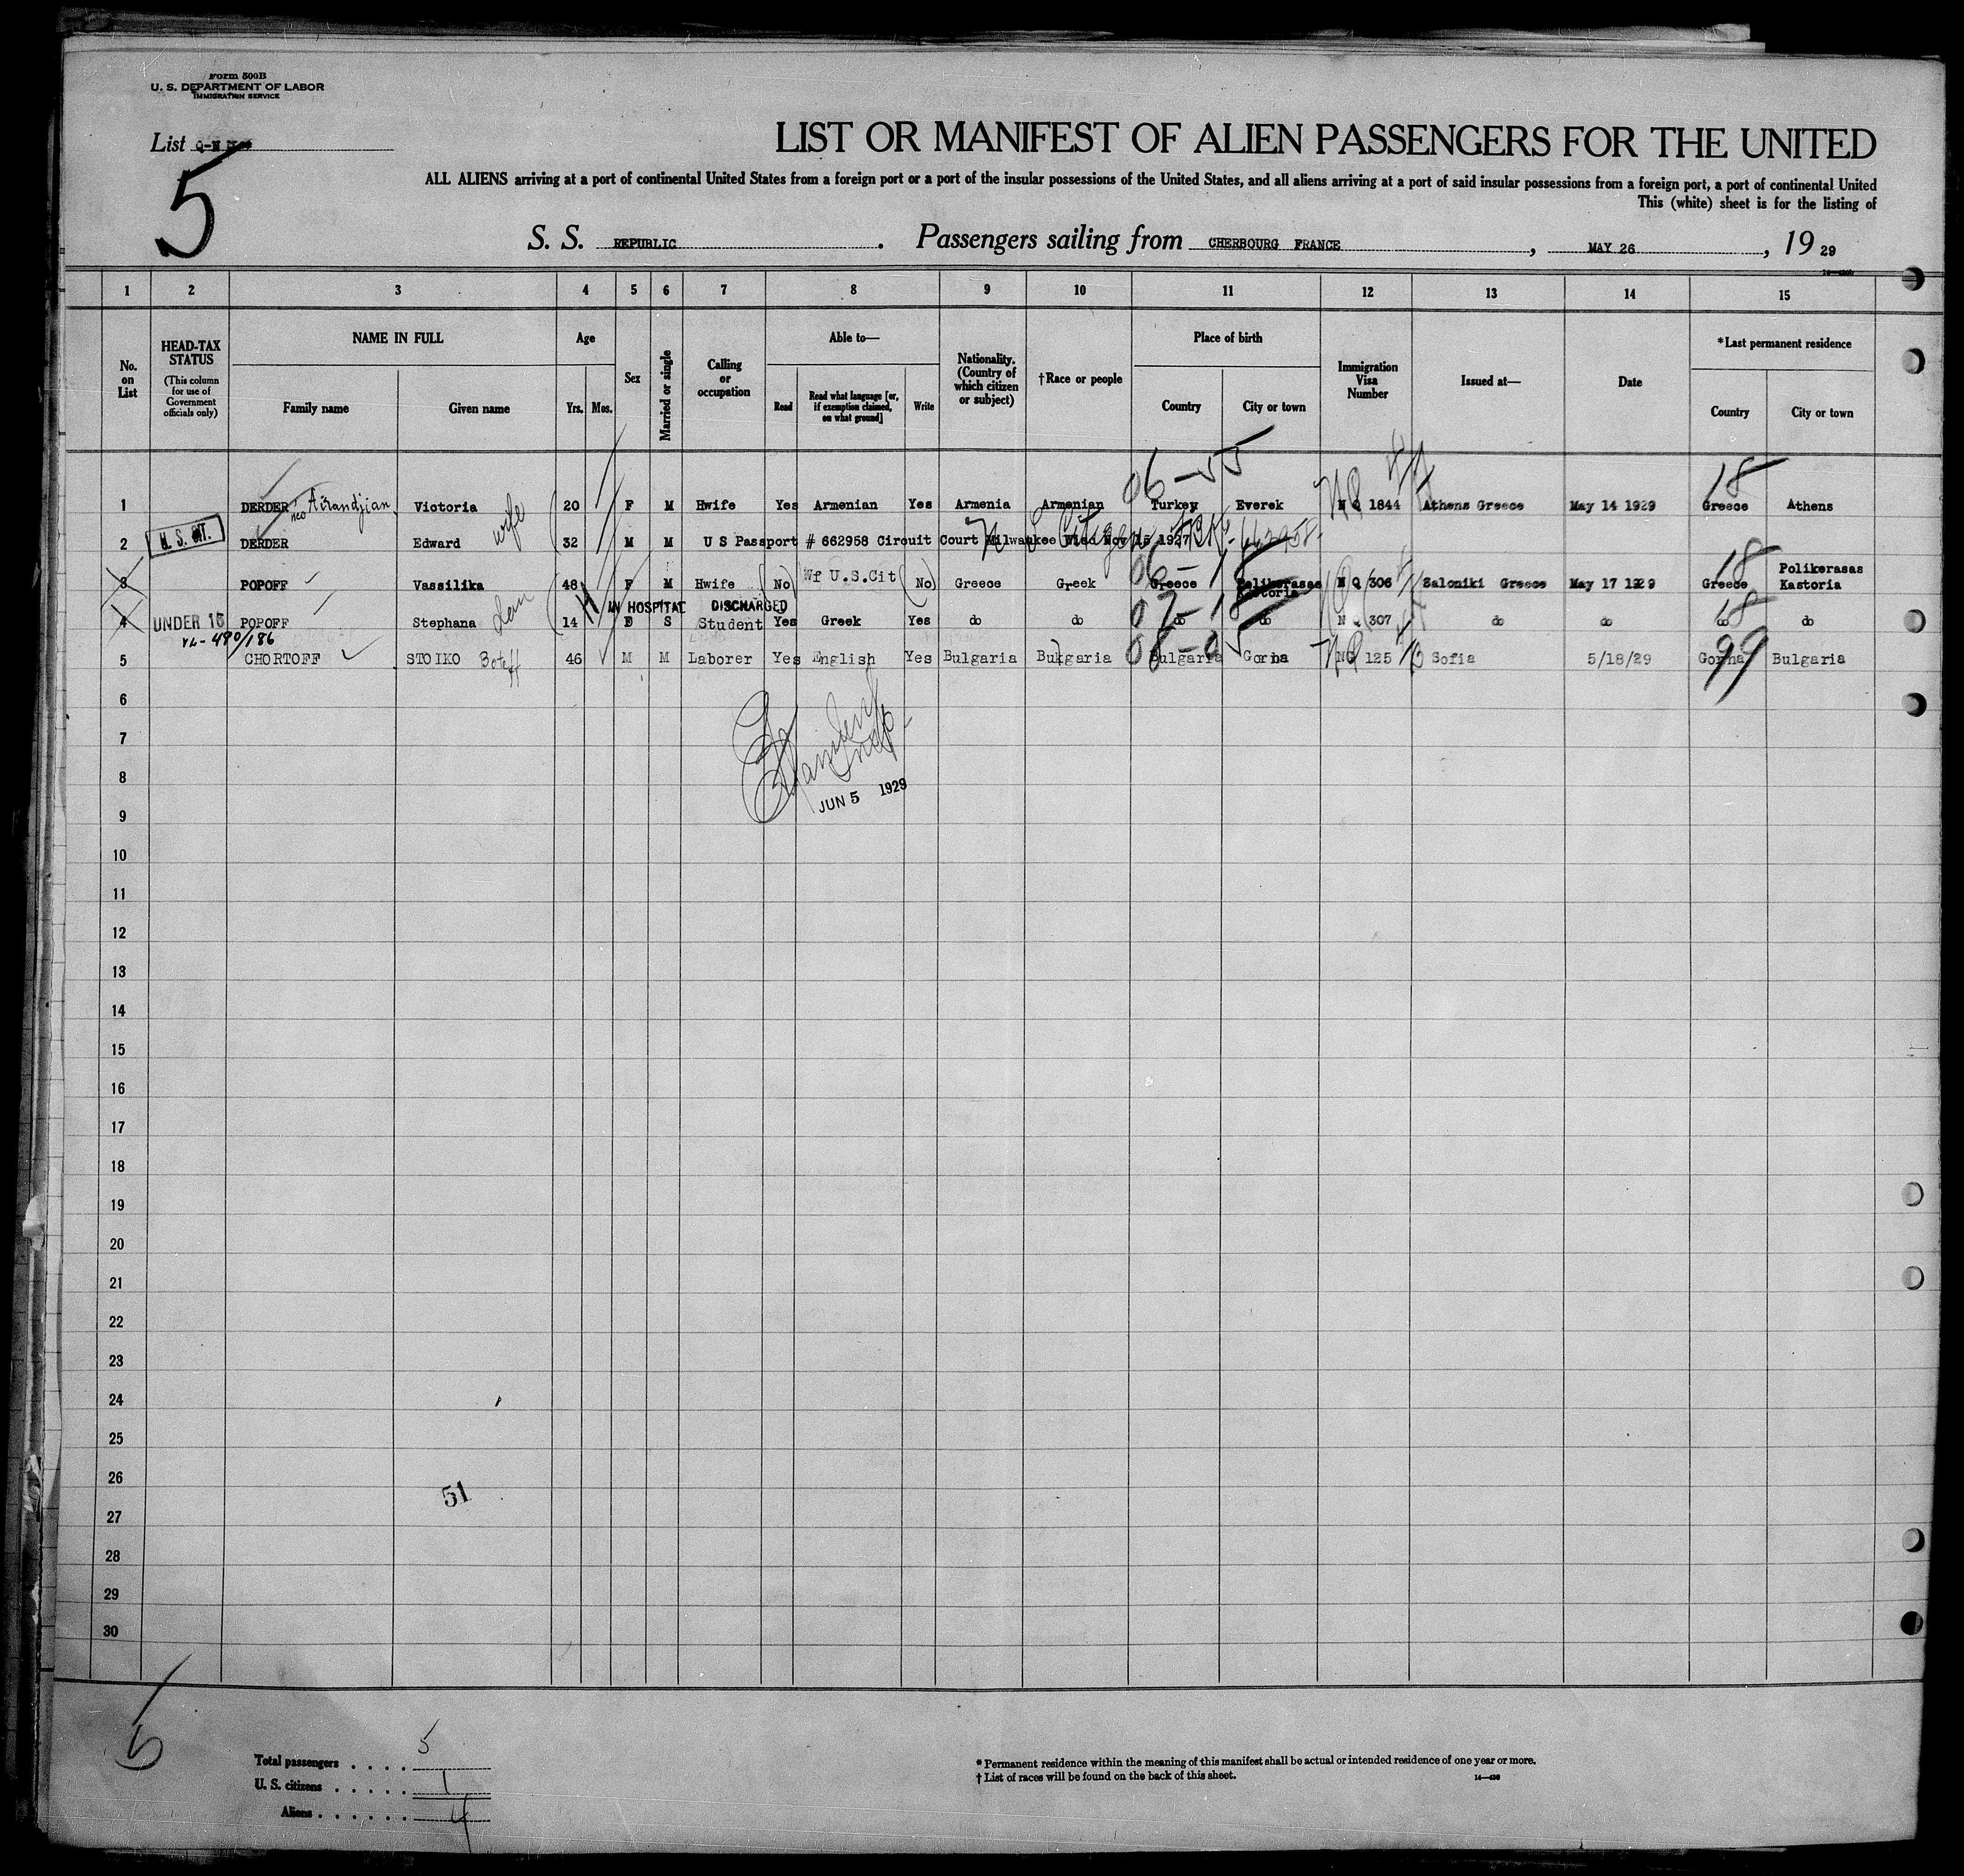 Form 500B
U. S. DEPARTMENT OF LABOR
IMMIGRATION SERVICE
List
5
LIST OR MANIFEST OF ALIEN PASSENGERS FOR THE UNITED
ALL ALIENS arriving at a port of continental United States from a foreign port or a port of the insular possessions of the United States, and all aliens arriving at a port of said insular possessions from a foreign port, a port of continental United
This (white) sheet is for the listing of
S. S. REPUBLIC . Passengers sailing from CHERBOURG FRANCE , MAY 26 , 19 29
1 2 3 4 5 6 7 8 9 10 11 12 13 14 15
No. on List
HEAD-TAX STATUS
(This column for use of Government officials only)
NAME IN FULL
Family name Given name
Age
Yrs. Mos.
Sex
Married or single
Calling or occupation
Able to—
Read
Read what language [or, if exemption claimed, on what ground]
Write
Nationality. (Country of which citizen or subject)
†Race or people
Place of birth
Country City or town
Immigration Visa Number
Issued at—
Date
*Last permanent residence
Country City or town
06-55 18
1 DERDER Victoria wife 20 F M Hwife Yes Armenian Yes Armenia Armenian Turkey Everek N Q 1844 Athens Greece May 14 1929 Greece Athens
U. S. CIT.
2 DERDER Edward 32 M M U S Passport # 662958 Circuit Court Milwaukee Nov 15 1927
06-18 18
3 POPOFF Vassilika 48 F M Hwife (No) Wf U.S.Cit (No) Greece Greek Greece Polikerasas Kastoria N Q 306 Saloniki Greece May 17 1929 Greece Polikerasas Kastoria
IN HOSPITAL DISCHARGED
07-18 18
4 UNDER 16 POPOFF Stephana 14 S Student Yes Greek Yes do do do do N Q 307 do do do do
480/186
08-05 99
5 CHORTOFF STOIKO Boteff 46 M M Laborer Yes English Yes Bulgaria Bulgaria Bulgaria Gorna NQ 125 Sofia 5/18/29 Gorna Bulgaria
6
7
8
JUN 5 1929
9
10
11
12
13
14
15
16
17
18
19
20
21
22
23
24
25
26
51
27
28
29
30
5
Total passengers . . . . 5
U. S. citizens . . . . . 1
Aliens . . . . . . 4
* Permanent residence within the meaning of this manifest shall be actual or intended residence of one year or more.
† List of races will be found on the back of this sheet.